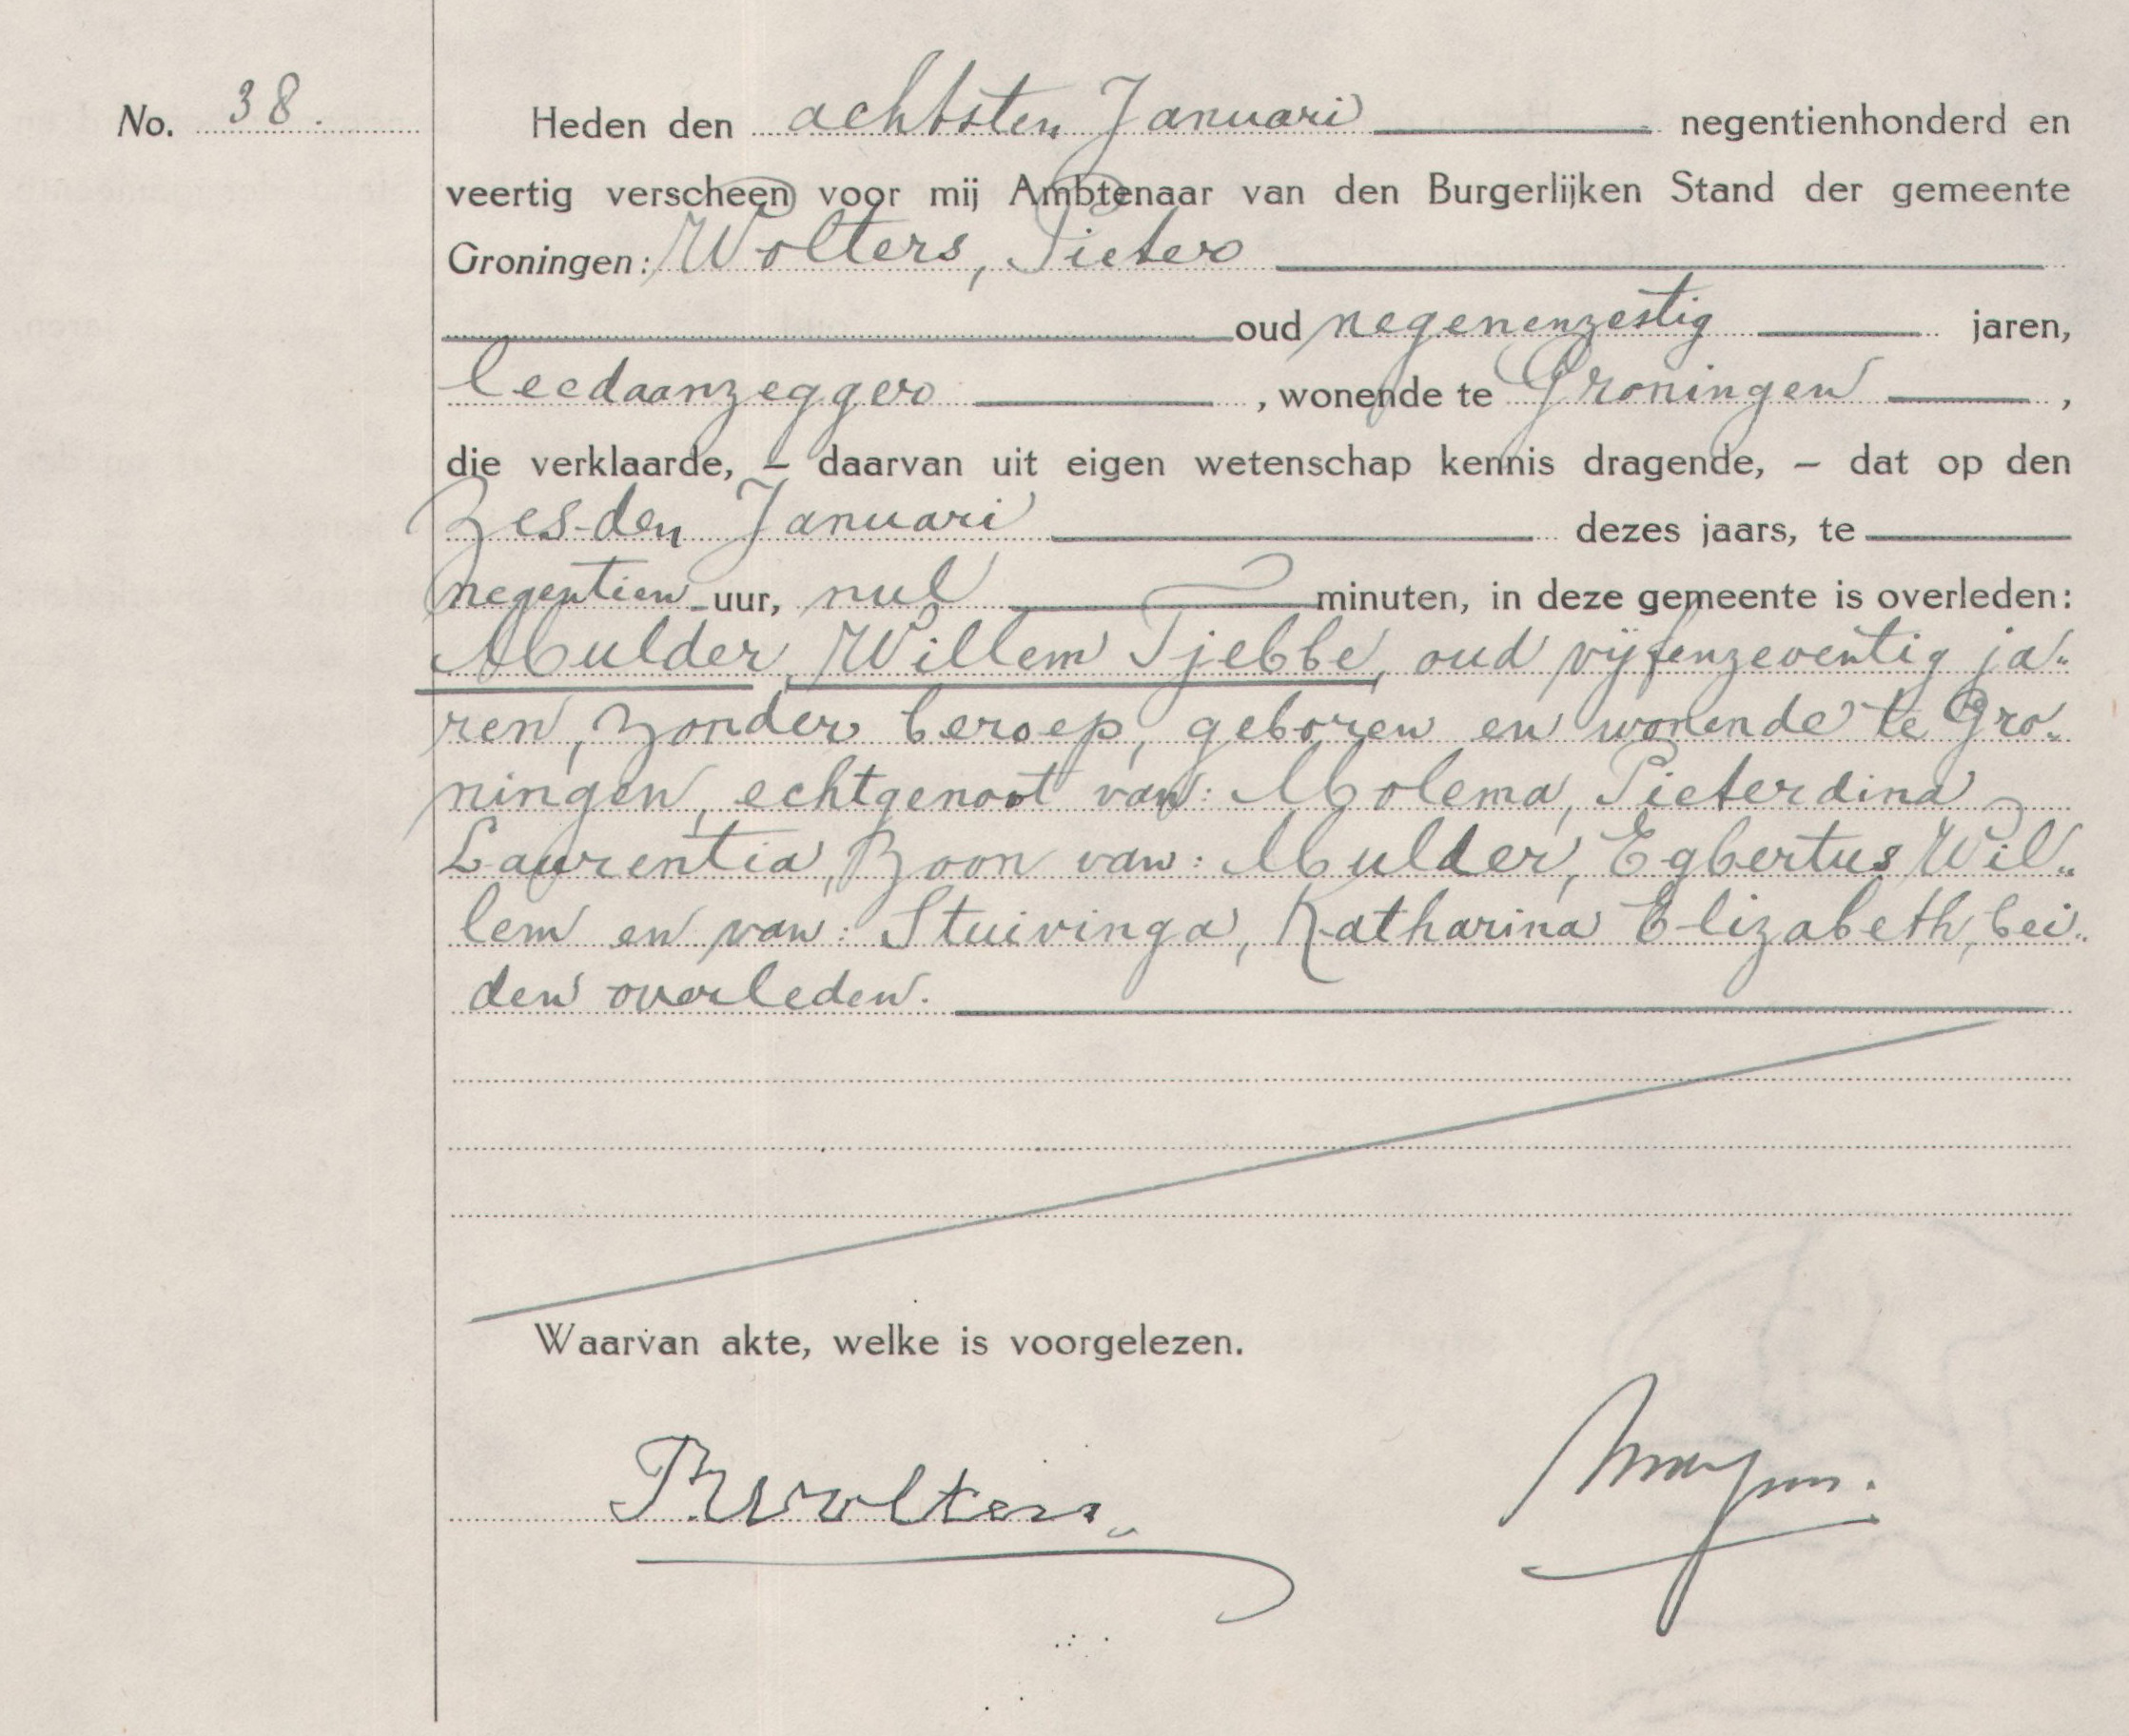 No. 38.
Heden den achtsten Januari negentienhonderd en
veertig verscheen voor mij Ambtenaar van den Burgerlijken Stand der gemeente
Groningen: Wolters, Pieter
oud negenenzestig jaren,
leedaanzegger, wonende te Groningen,
die verklaarde, – daarvan uit eigen wetenschap kennis dragende, – dat op den
Zesden Januari dezes jaars, te
negentien uur, nul minuten, in deze gemeente is overleden:
Mulder, Willem Tjebbe, oud vijfenzeventig ja„
ren, zonder beroep, geboren en wonende te Gro„
ningen, echtgenoot van: Molema, Pieterdina
Laurentia, Zoon van: Mulder, Egbertus Wil„
lem en van: Stuivinga, Katharina Elizabeth, bei„
den overleden.
Waarvan akte, welke is voorgelezen.
PWolters